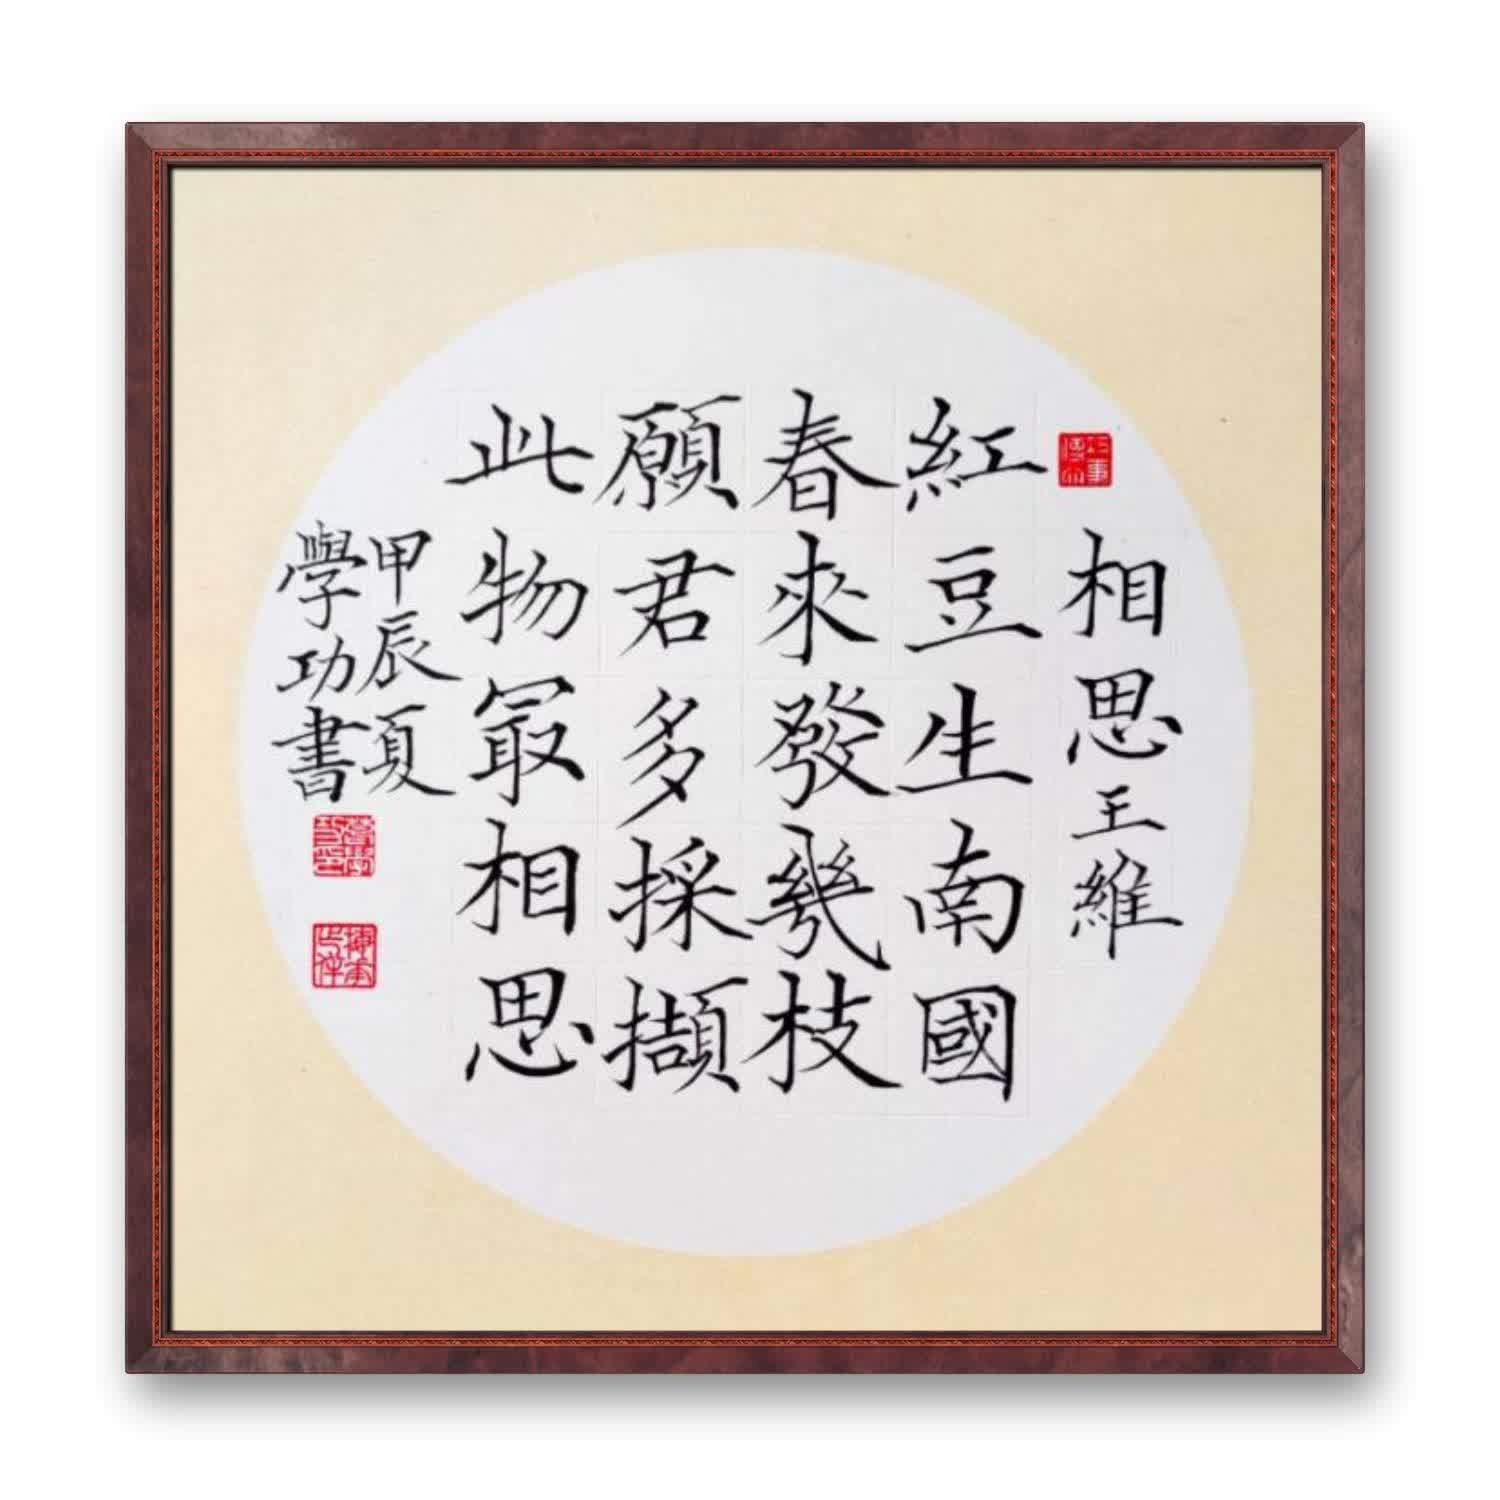 相思 王維
紅豆生南國
春來發幾枝
願君多採擷
此物最相思
甲辰夏
學功書